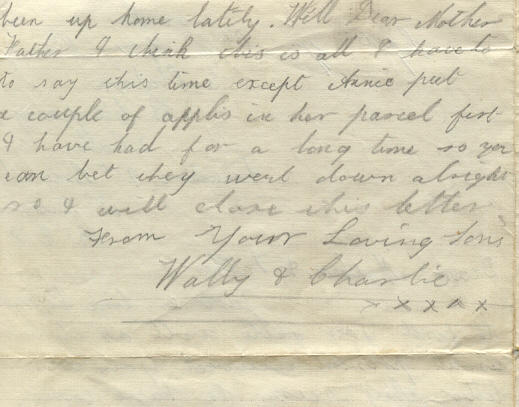 been up home lately. Well Dear Mother
Father I think this is all I have to
to say this time except Annie put
a couple of apples in her parcel first
I have had for a long time so you
can bet they went down alright
so I will close this letter
From Your Loving Sons
Wally & Charlie
x x x x x